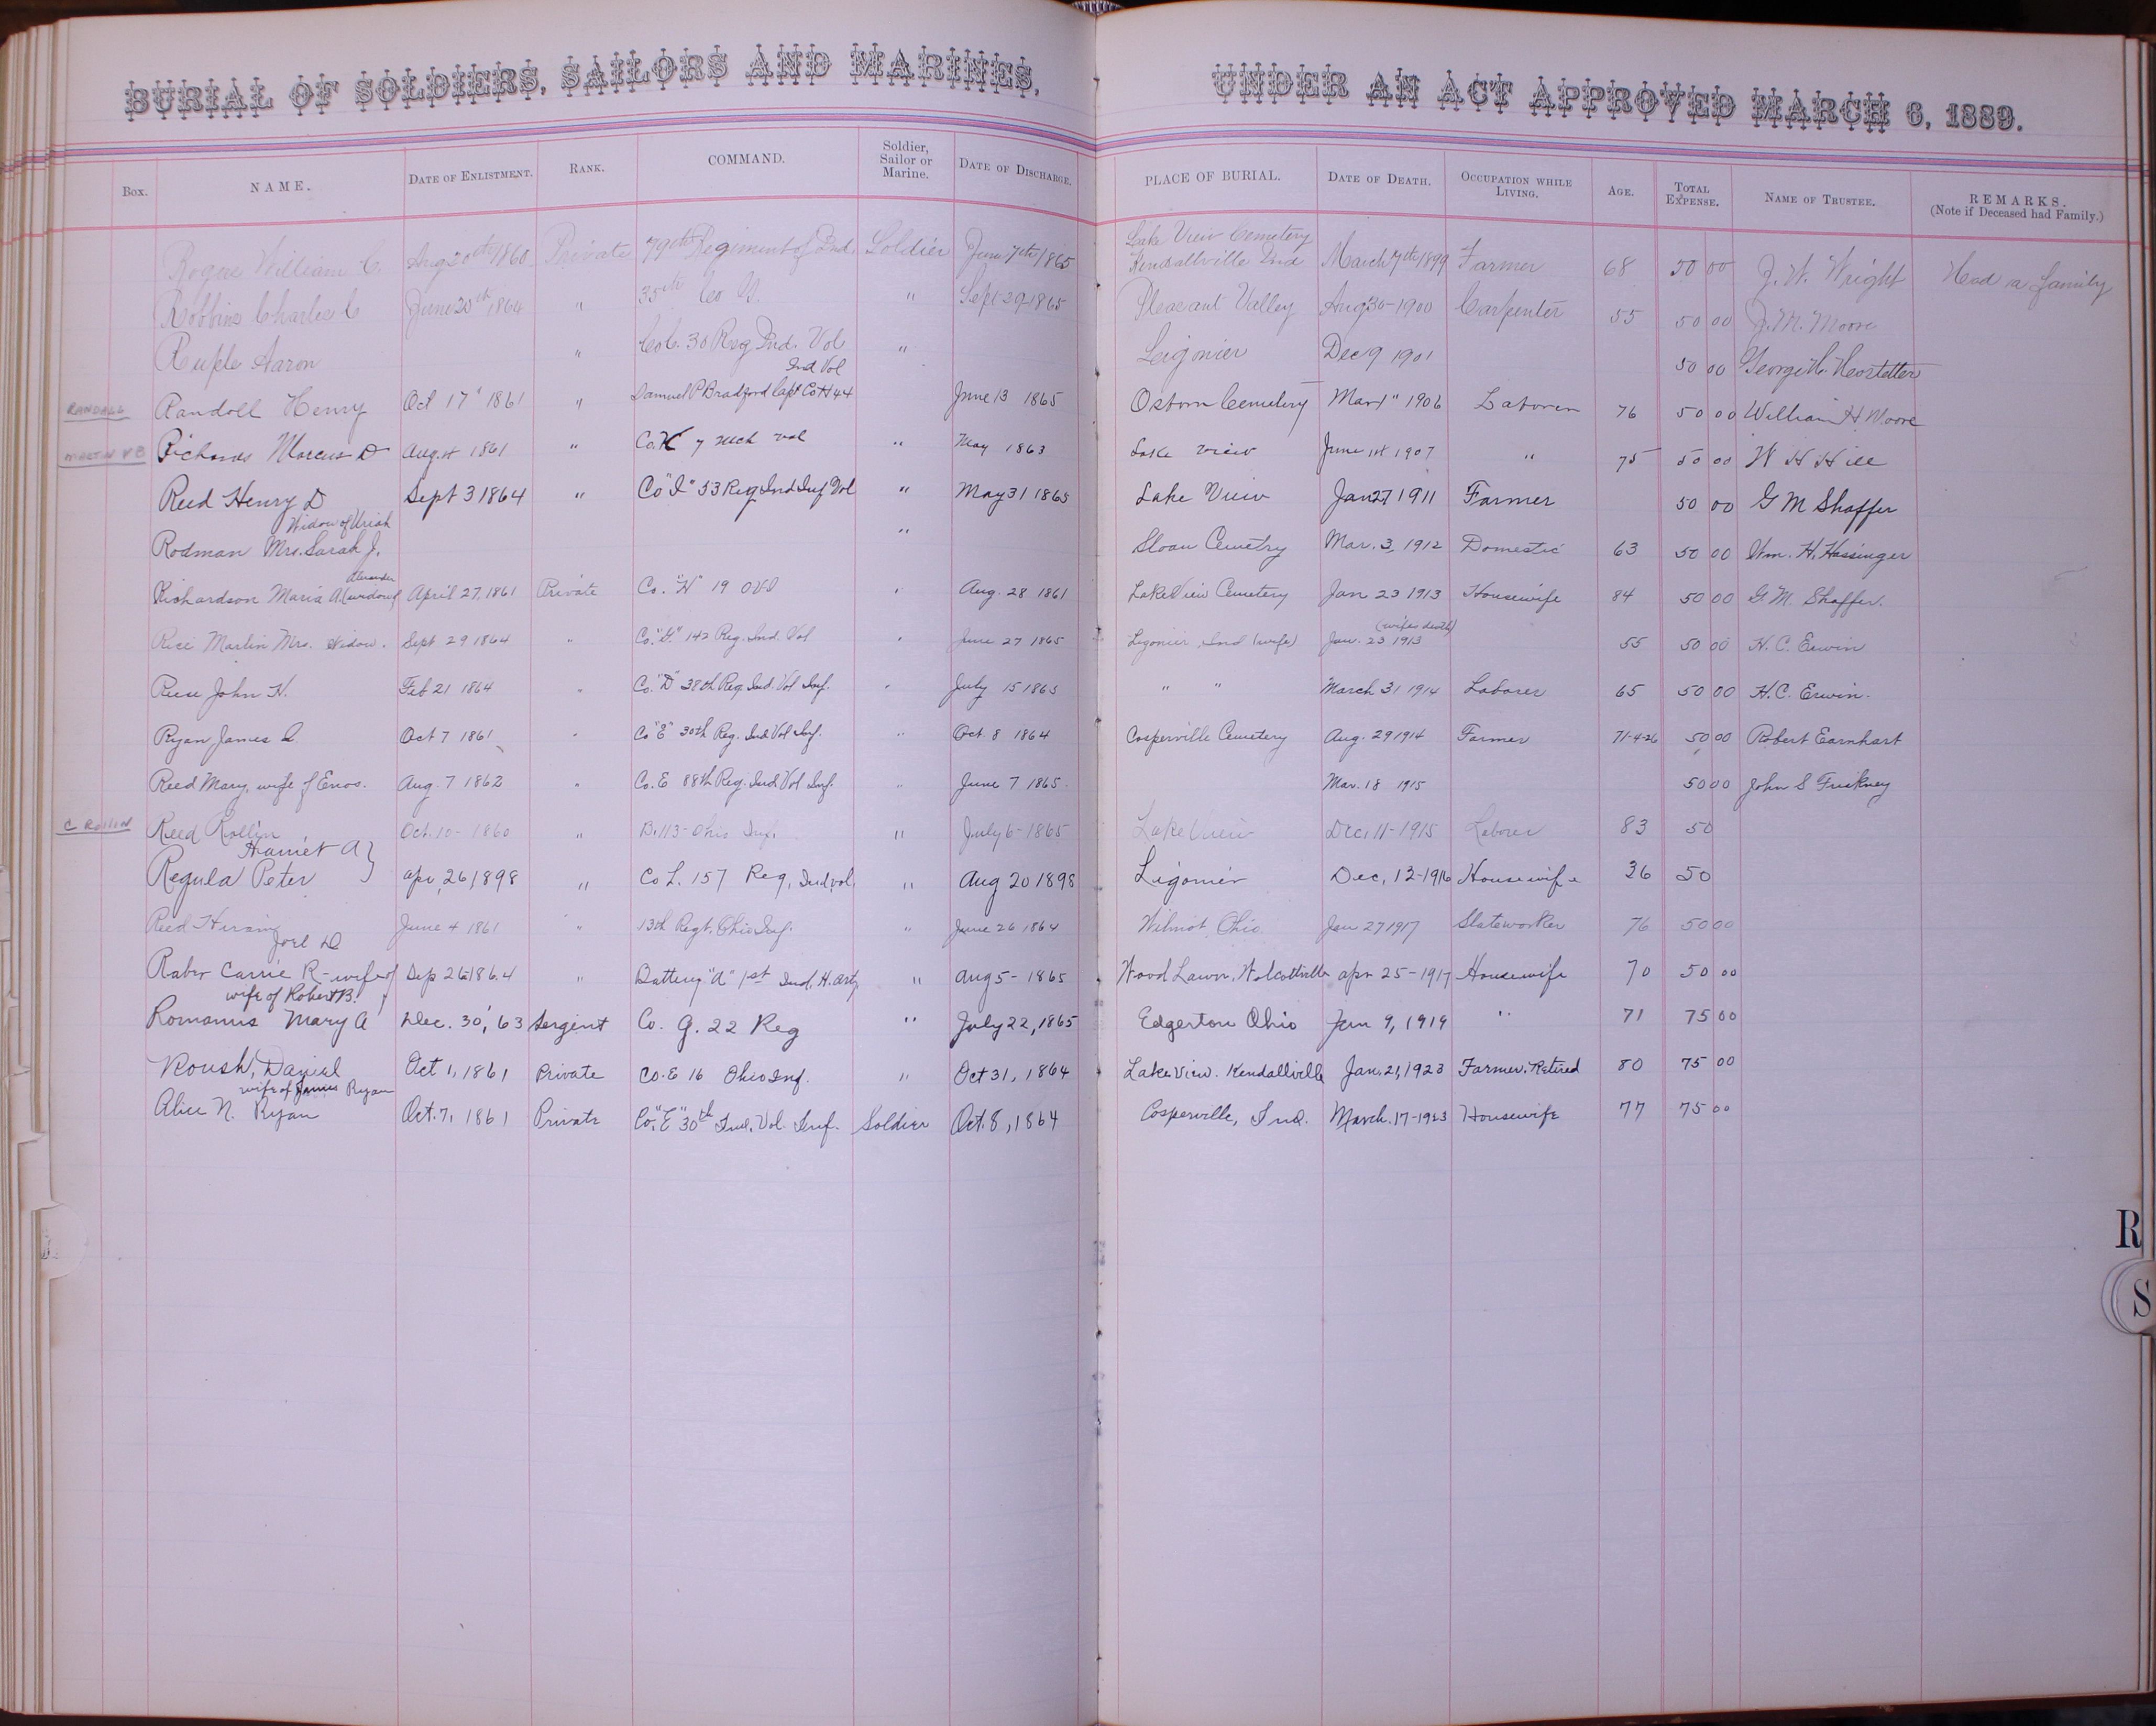 BURIAL OF SOLDIERS, SAILORS AND MARINES, UNDER AN ACT APPROVED MARCH 6, 1889.
Box. NAME. DATE OF ENLISTMENT. RANK. COMMAND. Soldier, Sailor or Marine. DATE OF DISCHARGE. PLACE OF BURIAL. DATE OF DEATH. OCCUPATION WHILE LIVING. AGE. TOTAL EXPENSE. NAME OF TRUSTEE. REMARKS. (Note if Deceased had Family.)
Rogers William C. Aug 20th 1860 Private 79th Regiment of Ind. Soldier June 7th 1865 Lake View Cemetery Kendallville Ind March 7th 1899 Farmer 68 50 00 J. W. Wright Had a family
Robbins Charles C June 20th 1864 " 35th Co " Sept 29 1865 Pleasant Valley Aug 30 - 1900 Carpenter 55 50 00 J. M. Moore
Ruple Aaron " Co C. 30 Reg Ind. Vol " Ligonier Dec 9 1901 50 00 George H. Hostetter
RANDALL Randoll Henry Oct 17" 1861 " Samuel P Bradford Capt Co H 44 Ind Vol June 13 1865 Osborn Cemetery Mar 1" 1906 Laborer 76 50 00 William H Moore
MARTIN VB Richards Marcus D Aug. 1861 " Co. K 7 Mich Vol " May 1863 Lake View June 1907 " 75 50 00 W H Hill
Reed Henry D Sept 3 1864 " Co "I" 53 Reg Ind Inf Vol " May 31 1865 Lake View Jan 27 1911 Farmer 50 00 G M Shaffer
Widow of Uriah
Rodman Mrs. Sarah J. " Sloan Cemetry Mar. 3, 1912 Domestic 63 50 00 Wm. H. Hassinger
Alexander
Richardson Maria A. (widow of April 27, 1861 Private Co. "H" 19 OVI " Aug. 28 1861 Lake View Cemetery Jan 23 1913 Housewife 84 50 00 G. M. Shaffer.
Rice Marlin Mrs. Widow. Sept 29 1864 " Co. "G" 142 Reg. Ind. Vol " June 27 1865 Ligonier, Ind (wife) (wifes death) Jan. 23 1913 55 50 00 H. C. Erwin
Reese John H. Feb 21 1864 " Co. "D" 38th Reg. Ind. Vol Inf. " July 15 1865 " " March 31 1914 Laborer 65 50 00 H. C. Erwin.
Ryan James Oct 7 1861 " Co "E" 30th Reg. Ind Vol Inf. " Oct. 8 1864 Cosperville Cemetery Aug. 29 1914 Farmer 71-4-26 50 00 Robert Earnhart
Reed Mary, wife of Enos. Aug. 7 1862 " Co. E 88th Reg. Ind Vol Inf. " June 7 1865. Mar. 18 1915 50 00 John S Friskney
C ROLLIN Reed Rollin Oct. 10 - 1860 " B. 113 - Ohio Inf. " July 6 - 1865 Lake View Dec. 11 - 1915 Laborer 83 50
Harriet A }
Regula Peter Apr, 26, 1898 " Co L. 157 Reg, Ind vol. " Aug 20 1898 Ligonier Dec, 13 - 1916 Housewife 36 50
Reed Hiram June 4 1861 " 13th Regt. Ohio Inf. " June 26 1864 Wilmot Ohio Jan 27 1917 Slateworker 76 50 00
Joel D
Raber Carrie R - wife of Sep 26 1864 " Battery "A" 1st Ind. H. Arty " Aug 5 - 1865 Wood Lawn, Wolcottville Apr 25 - 1917 Housewife 70 50 00
wife of Robert B.
Romanus Mary A Dec. 30, '63 Sergent Co. G. 22 Reg " July 22, 1865 Edgerton Ohio Jan 9, 1919 " 71 75 00
Roush, Daniel Oct 1, 1861 Private Co. E 16 Ohio Inf. " Oct 31, 1864 Lake View. Kendallville Jan. 21, 1923 Farmer. Retired 80 75 00
wife of James Ryan
Alice N. Ryan Oct. 7, 1861 Private Co. "E" 30th Ind. Vol. Inf. Soldier Oct. 8, 1864 Cosperville, Ind. March. 17-1923 Housewife 77 75 00
R
S